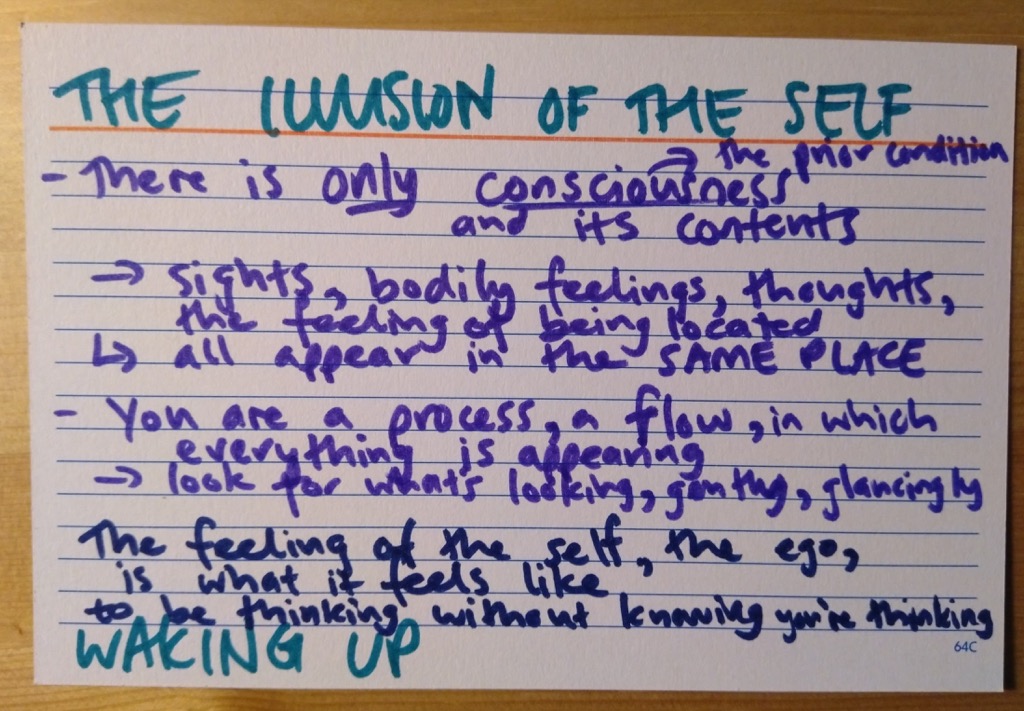 THE ILLUSION OF THE SELF
→ the prior condition
- There is only consciousness
and its contents
→ sights, bodily feelings, thoughts,
the feeling of being located
↳ all appear in the SAME PLACE
- You are a process, a flow, in which
everything is appearing
→ look for what's looking, gently, glancingly
The feeling of the self, the ego,
is what it feels like
to be thinking without knowing you're thinking
WAKING UP
64C